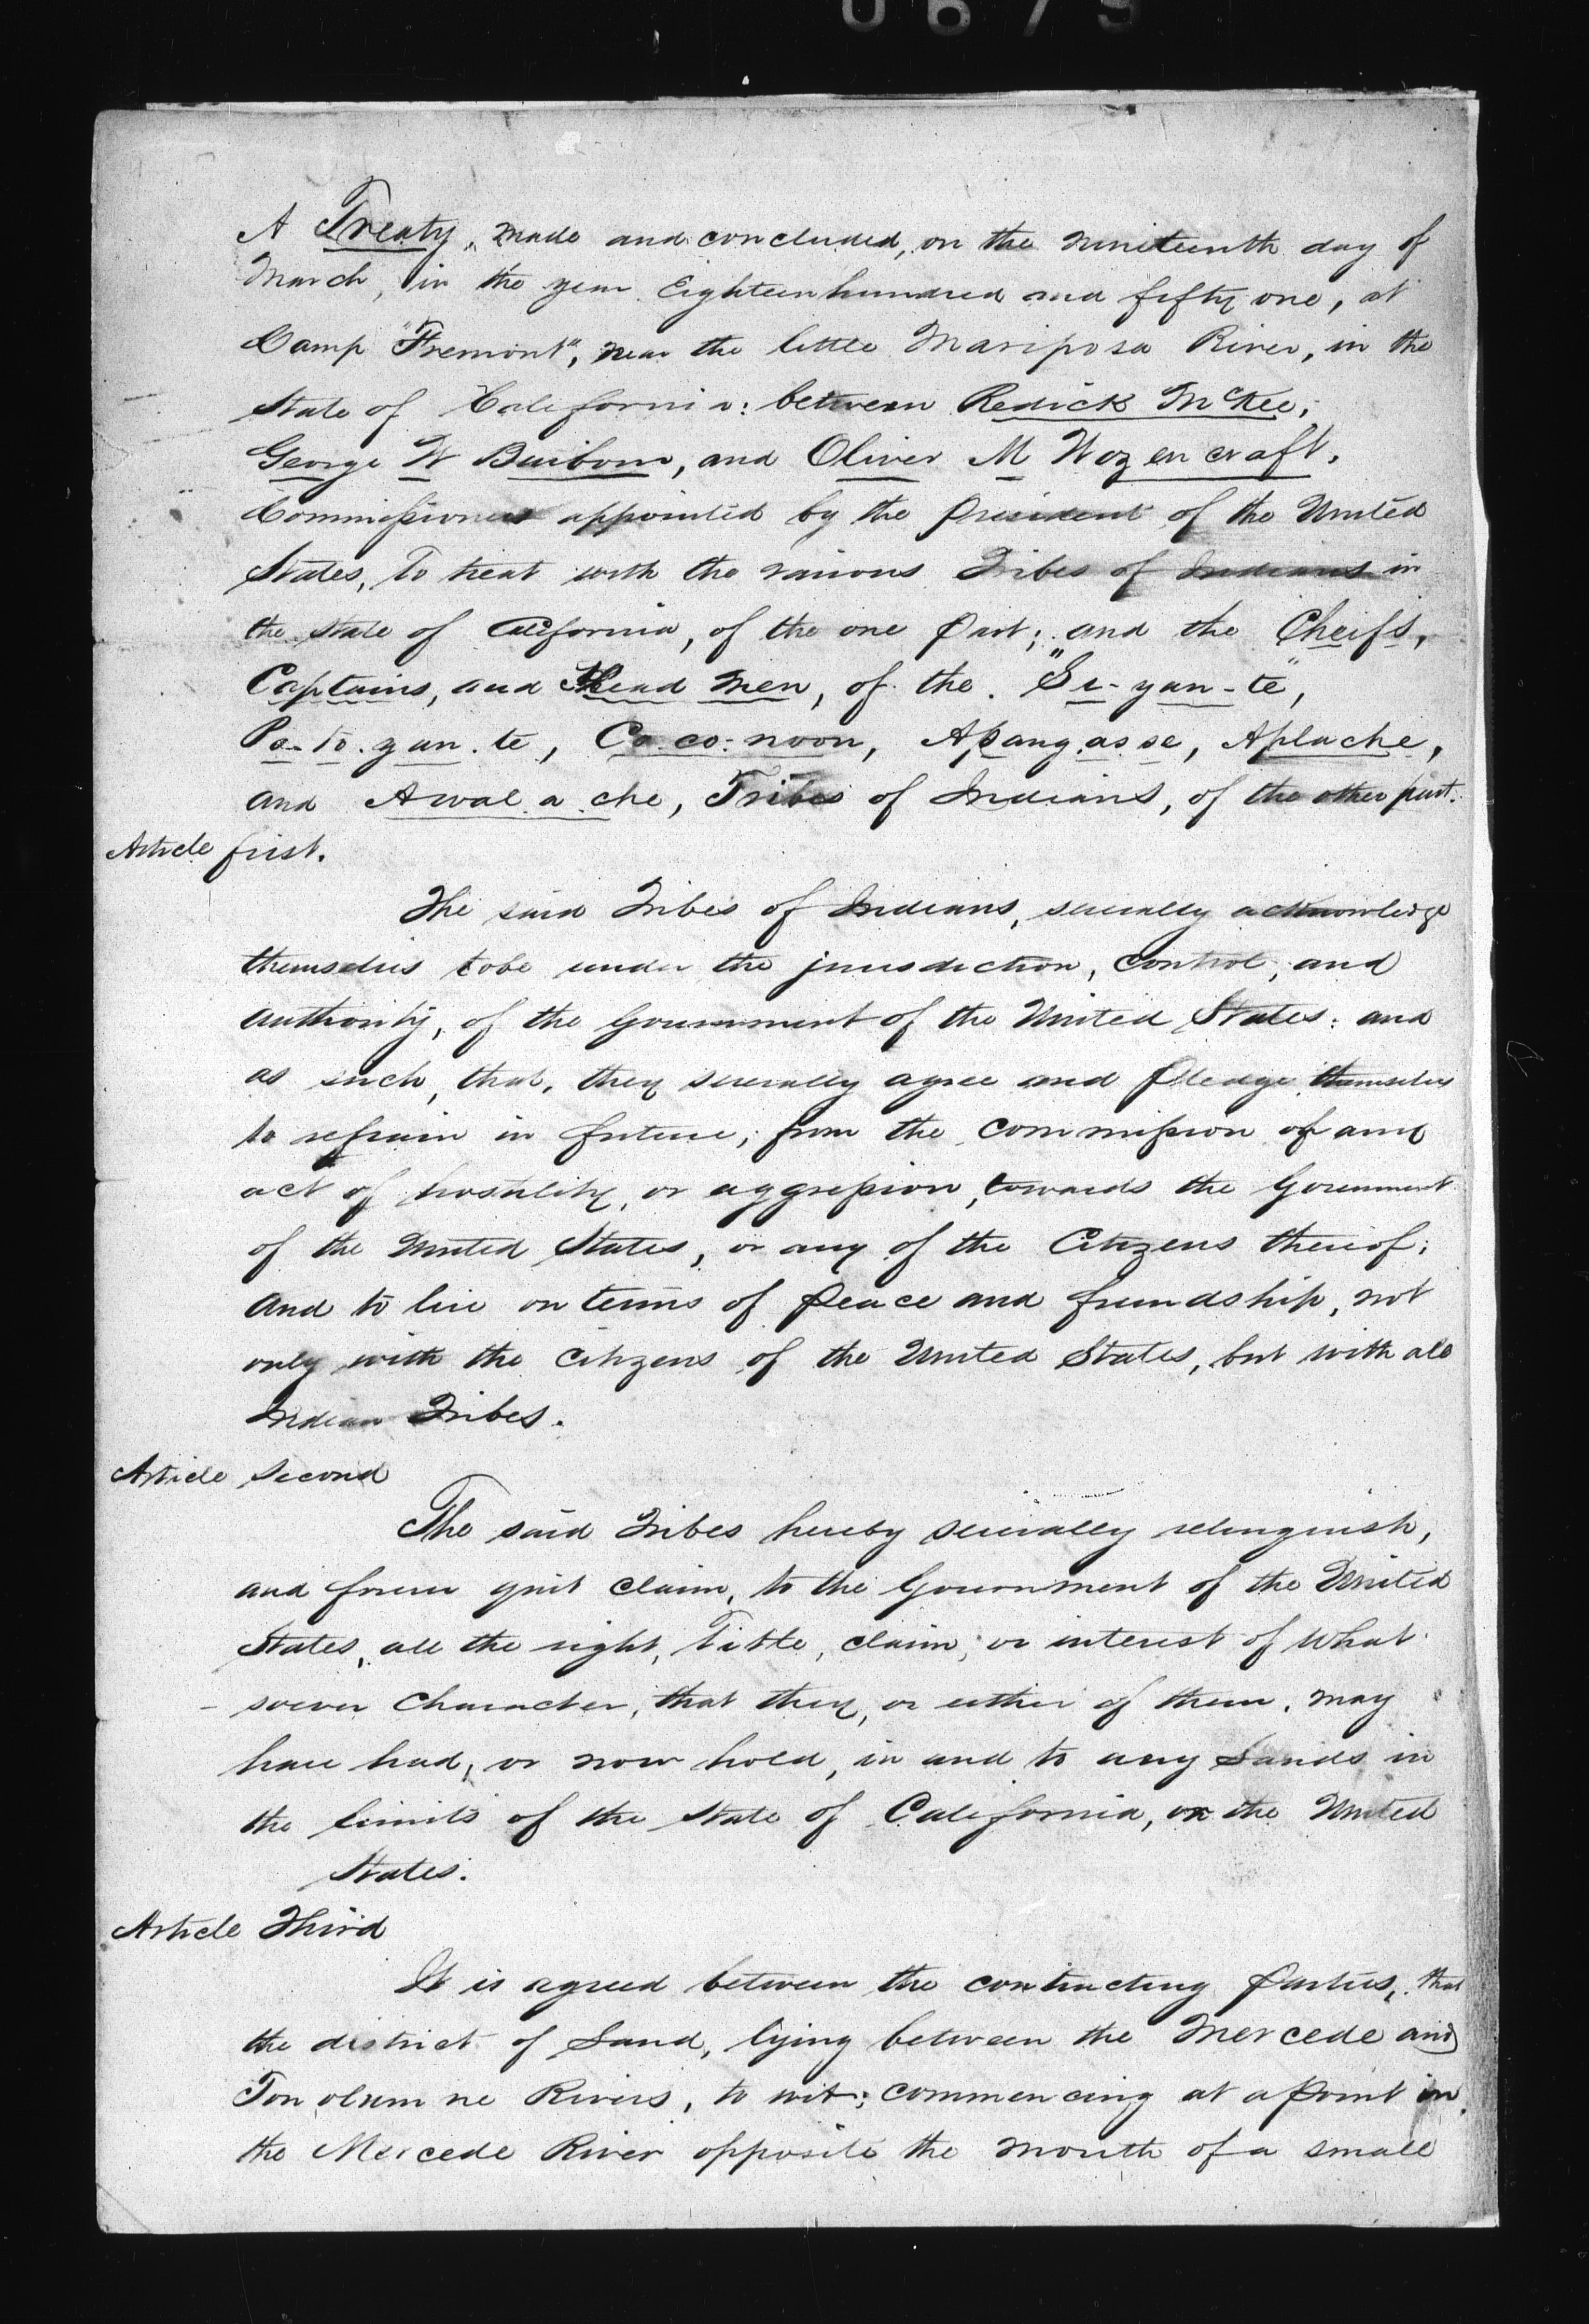 0673
A Treaty, made and concluded, on the nineteenth day of
March, in the year Eighteen hundred and fifty one, at
Camp "Fremont", near the little Mariposa River, in the
State of California: between Redick McKee,
George W Barbour, and Oliver M Wozencraft.
Commissioners appointed by the President of the United
States, To treat with the various Tribes of Indians in
the State of California, of the one part; and the Cheifs,
Captains, and Head Men, of the "Si-yan-te",
Po-to.yan.te, Co.co.noon, Apang.as.se, Aplache,
and Awal.a.che, Tribes of Indians, of the other part.
Article first.
The said Tribes of Indians, severally acknowledge
themselves to be under the jurisdiction, control, and
authority, of the Government of the United States: and
as such, that, they severally agree and pledge themselves
to refrain in future, from the commission of any
act of hostility, or aggression, towards the Government
of the United States, or any of the Citizens thereof;
and to live on terms of peace and friendship, not
only with the citizens of the United States, but with all
Indian Tribes.
Article second
The said Tribes hereby severally relinquish,
and forever quit claim, to the Government of the United
States, all the right, Title, claim, or interest of What
-soever Character, that they, or either of them, may
have had, or now hold, in and to any Lands in
the limits of the State of California, or the United
States.
Article Third
It is agreed between the contracting Parties, that
the district of Land, lying between the Mercede and
Tou olum ne Rivers, to wit; commencing at a point on
the Mercede River opposite the mouth of a small